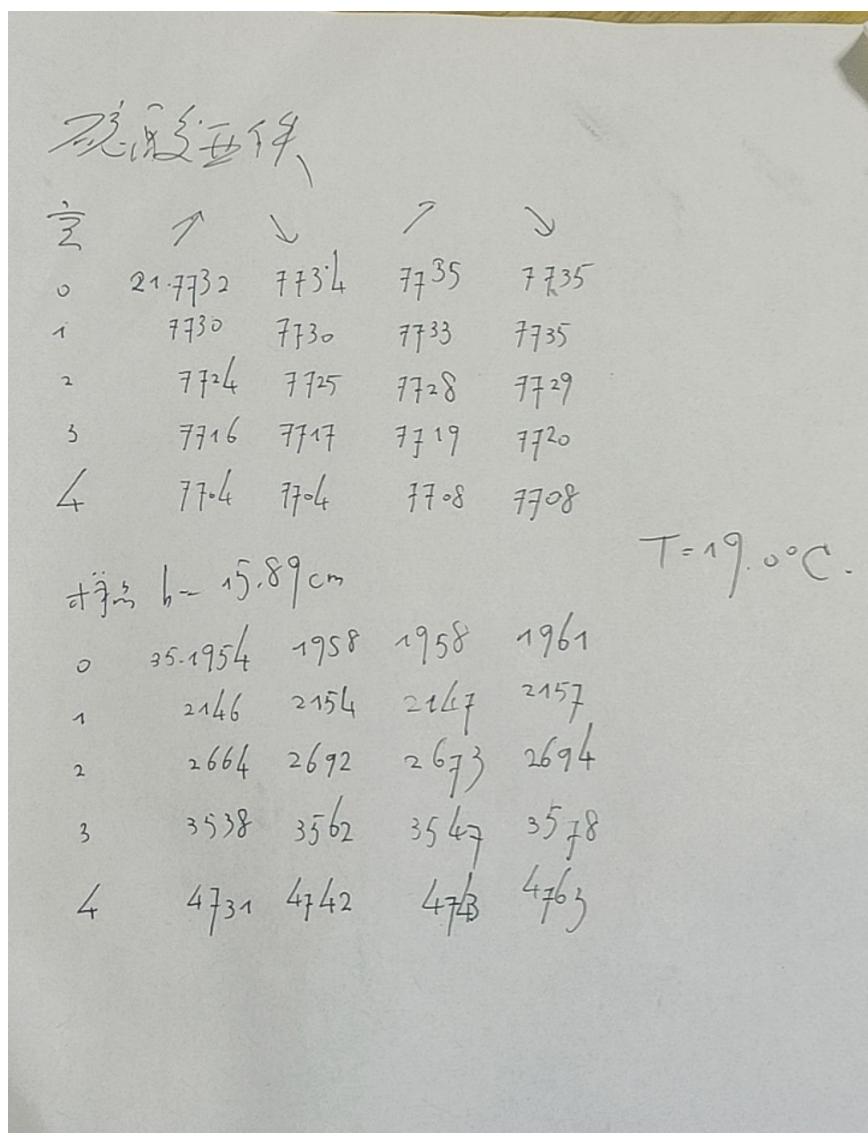 硫酸亚铁
空 ↗ ↘ ↗ ↘
0 21.7732 7734 7735 7735
1 7730 7730 7733 7735
2 7724 7725 7728 7729
3 7716 7717 7719 7720
4 7704 7704 7708 7708
T=19.0°C.
样品 h= 15.89cm
0 35.1954 1958 1958 1961
1 2146 2154 2147 2157
2 2664 2692 2673 2694
3 3538 3562 3547 3578
4 4731 4742 4743 4763